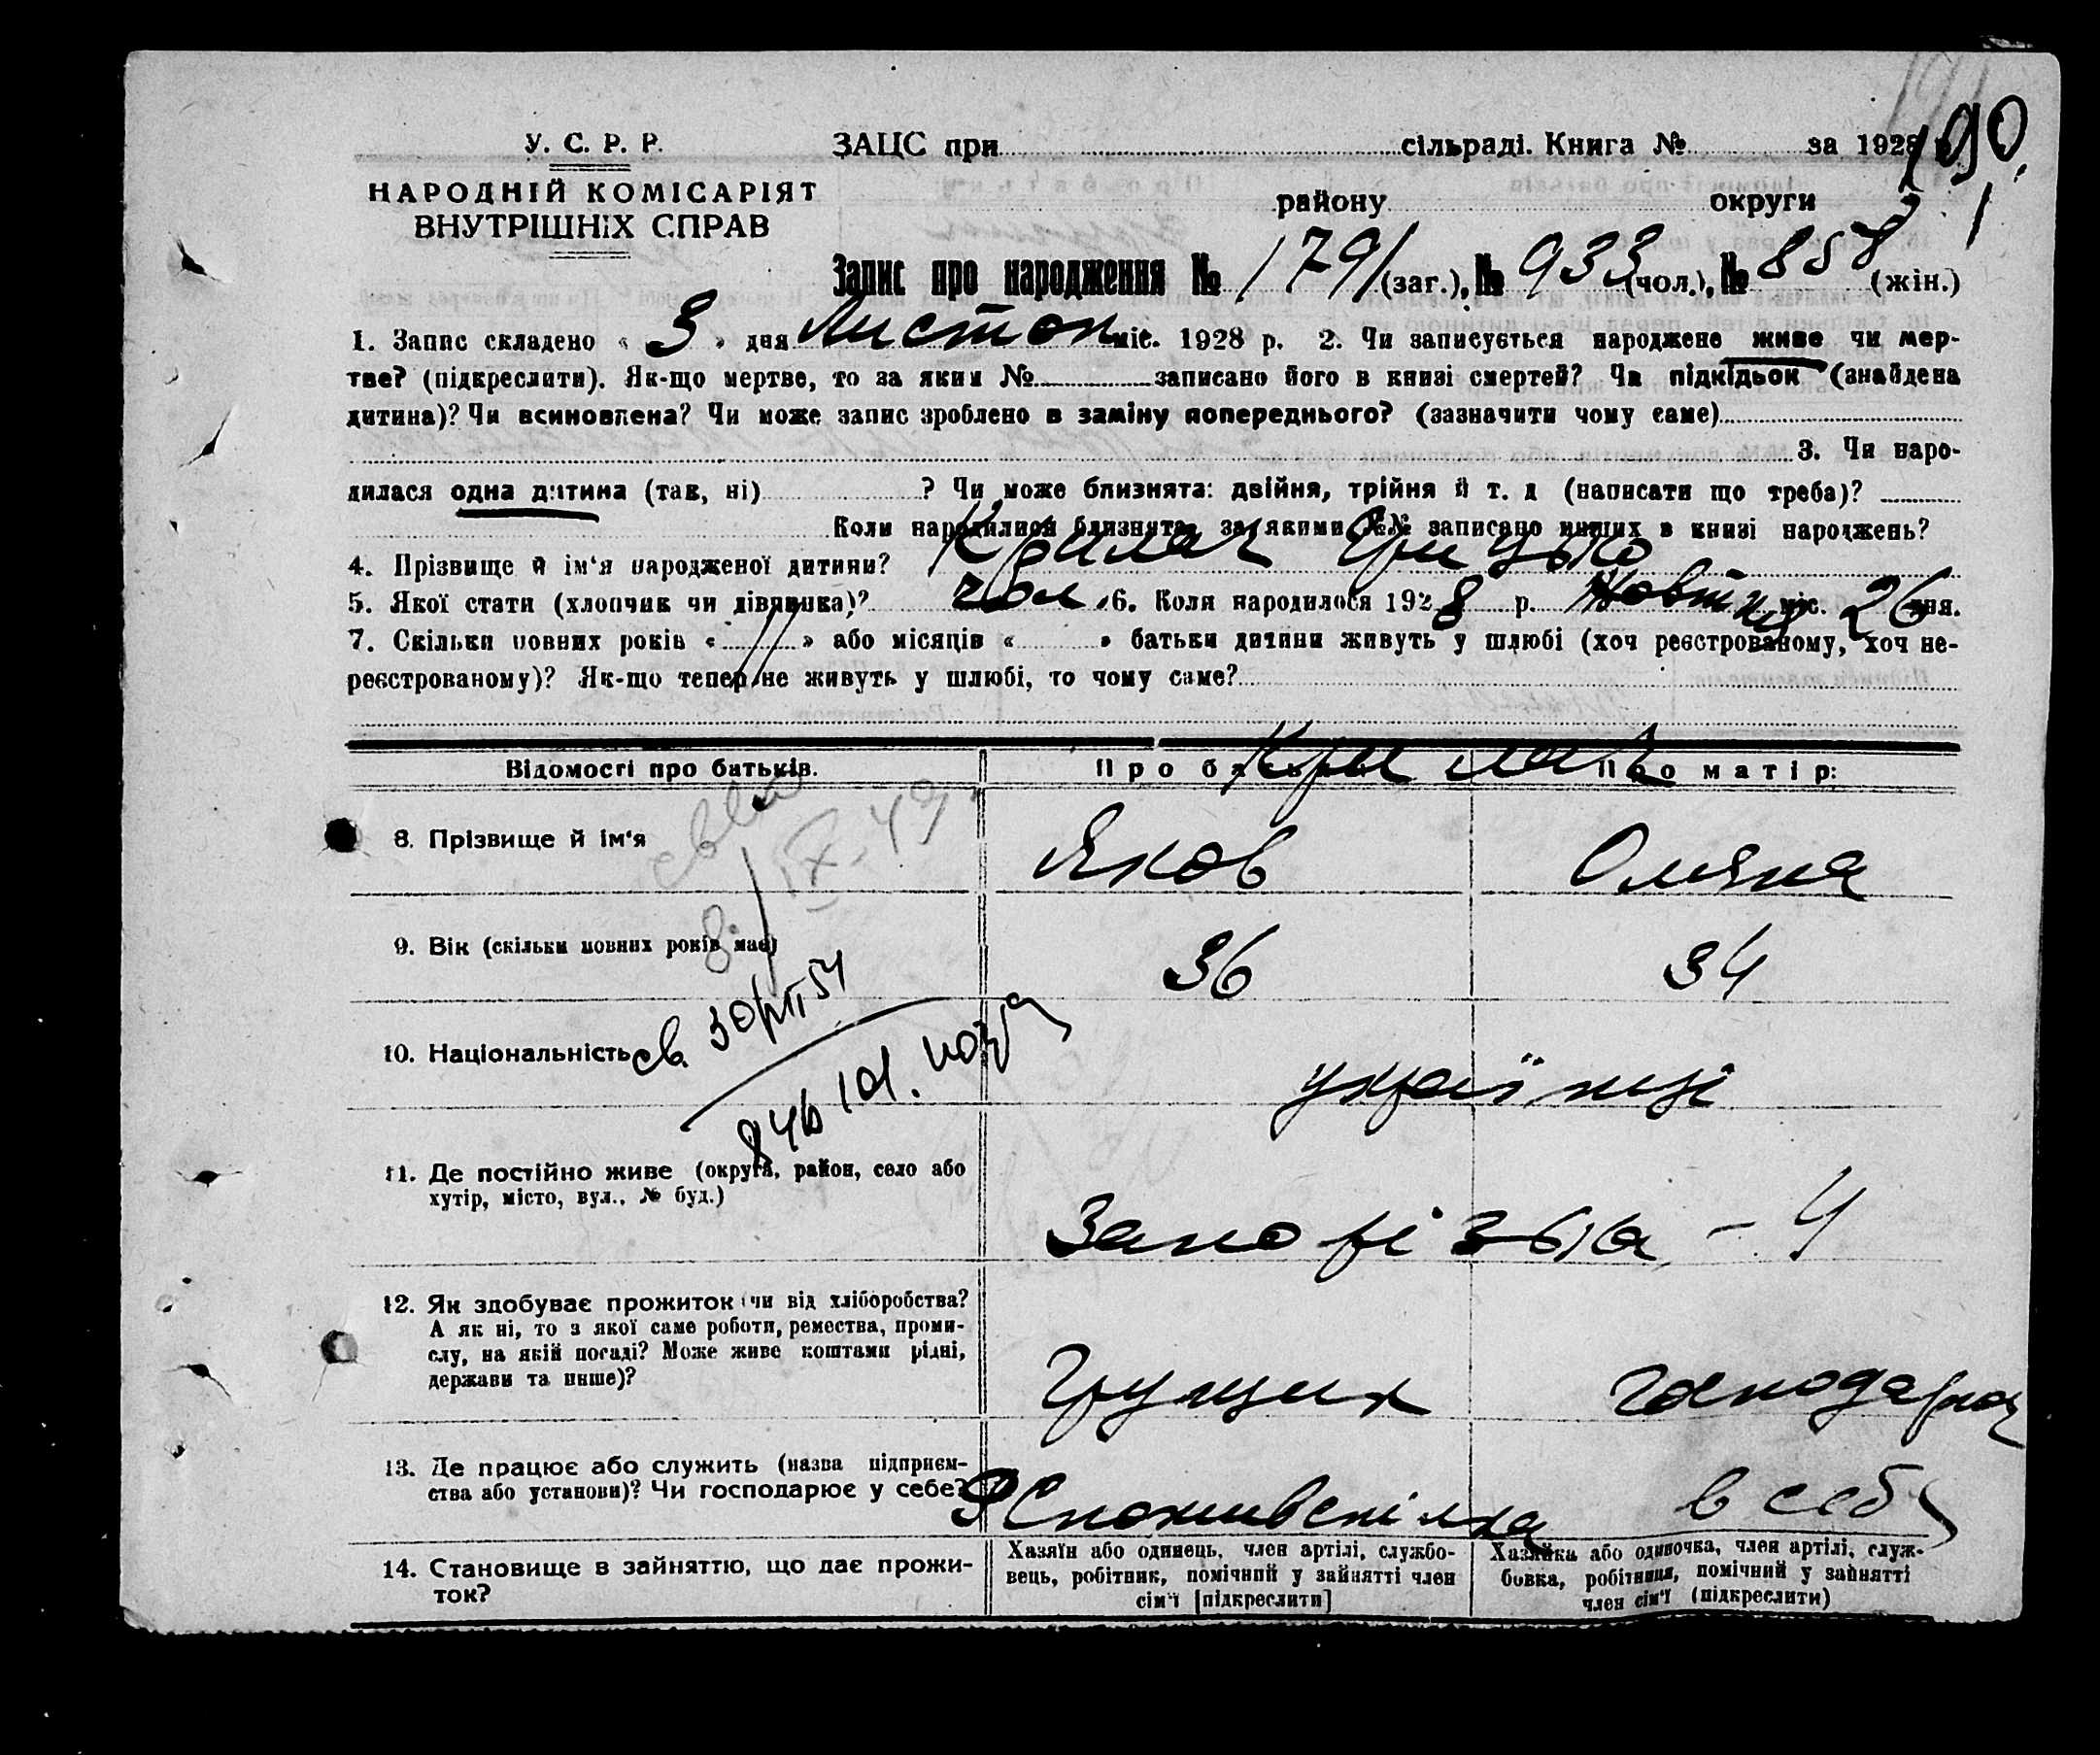 190
У. С. Р. Р.
НАРОДНІЙ КОМІСАРІЯТ
ВНУТРІШНІХ СПРАВ
ЗАЦС при сільраді. Книга № за 1928
району округи
Запис про народження № 1791 (заг.), № 933 (чол.), № 858 (жін.)
1. Запис складено « 3 » дня Листоп міс. 1928 р. 2. Чи записується народжене живе чи мер-
тве? (підкреслити). Як-що мертве, то за яким № записано його в книзі смертей? Чи підкідьок (знайдена
дитина)? Чи всиновлена? Чи може запис зроблено в заміну попереднього? (зазначити чому саме)
3. Чи наро-
дилася одна дитина (так, ні) ? Чи може близнята: двійня, трійня й т. д (написати що треба)?
Коли народилися близнята, за якими №№ записано инших в книзі народжень?
4. Прізвище й ім'я народженої дитини? Крилач Грицько
5. Якої стати (хлопчик чи дівчинка)? чол 6. Коли народилося 1928 р. Жовтня міс. 26 дня.
7. Скільки повних років « 11 » або місяців « » батьки дитини живуть у шлюбі (хоч реєстрованому, хоч не-
реєстрованому)? Як-що тепер не живуть у шлюбі, то чому саме?
Відомості про батьків. Про батька: Про матір:
8. Прізвище й ім'я Яков Оляна
9. Вік (скільки повних років має) 36 34
10. Національність українці
11. Де постійно живе (округа, район, село або
хутір, місто, вул., № буд.)
Запорізька - 4
12. Як здобуває прожиток (чи від хліборобства?
А як ні, то з якої саме роботи, ремества, проми-
слу, на якій посаді? Може живе коштами рідні,
держави та инше)?
Грущик господарка
13. Де працює або служить (назва підприєм-
ства або установи)? Чи господарює у себе?
Споживспілка в себе
14. Становище в зайняттю, що дає прожи-
ток?
Хазяїн або одинець, член артілі, службо-
вець, робітник, помічний у зайнятті член
сім'ї [підкреслити]
Хазяйка або одиночка, член артілі, служ-
бовка, робітниця, помічний у зайнятті
член сім'ї (підкреслити)